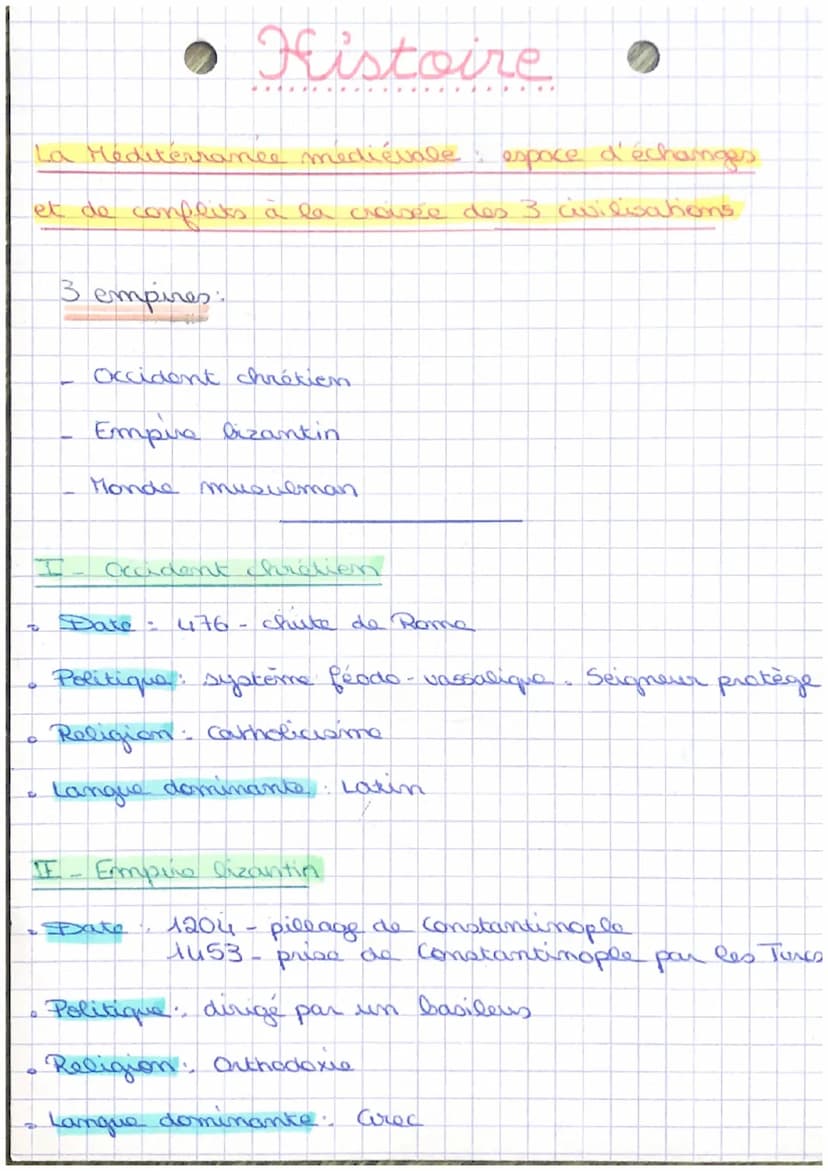 Histoire
La Méditérranée médiévale : espace d'échanges
et de conflits à la croisée des 3 civilisations
3 empires :
- Occident chrétien
- Empire bizantin
- Monde musulman
I - Occident chrétien
Date : 476 - chute de Rome
Politique : système féodo-vassalique. Seigneur protège
Religion : Catholicisme
Langue dominante : Latin
II - Empire bizantin
Date : 1204 - pillage de Constantinople
1453 - prise de Constantinople par les Turcs
Politique : dirigé par un basileus
Religion : Orthodoxie
Langue dominante : Grec